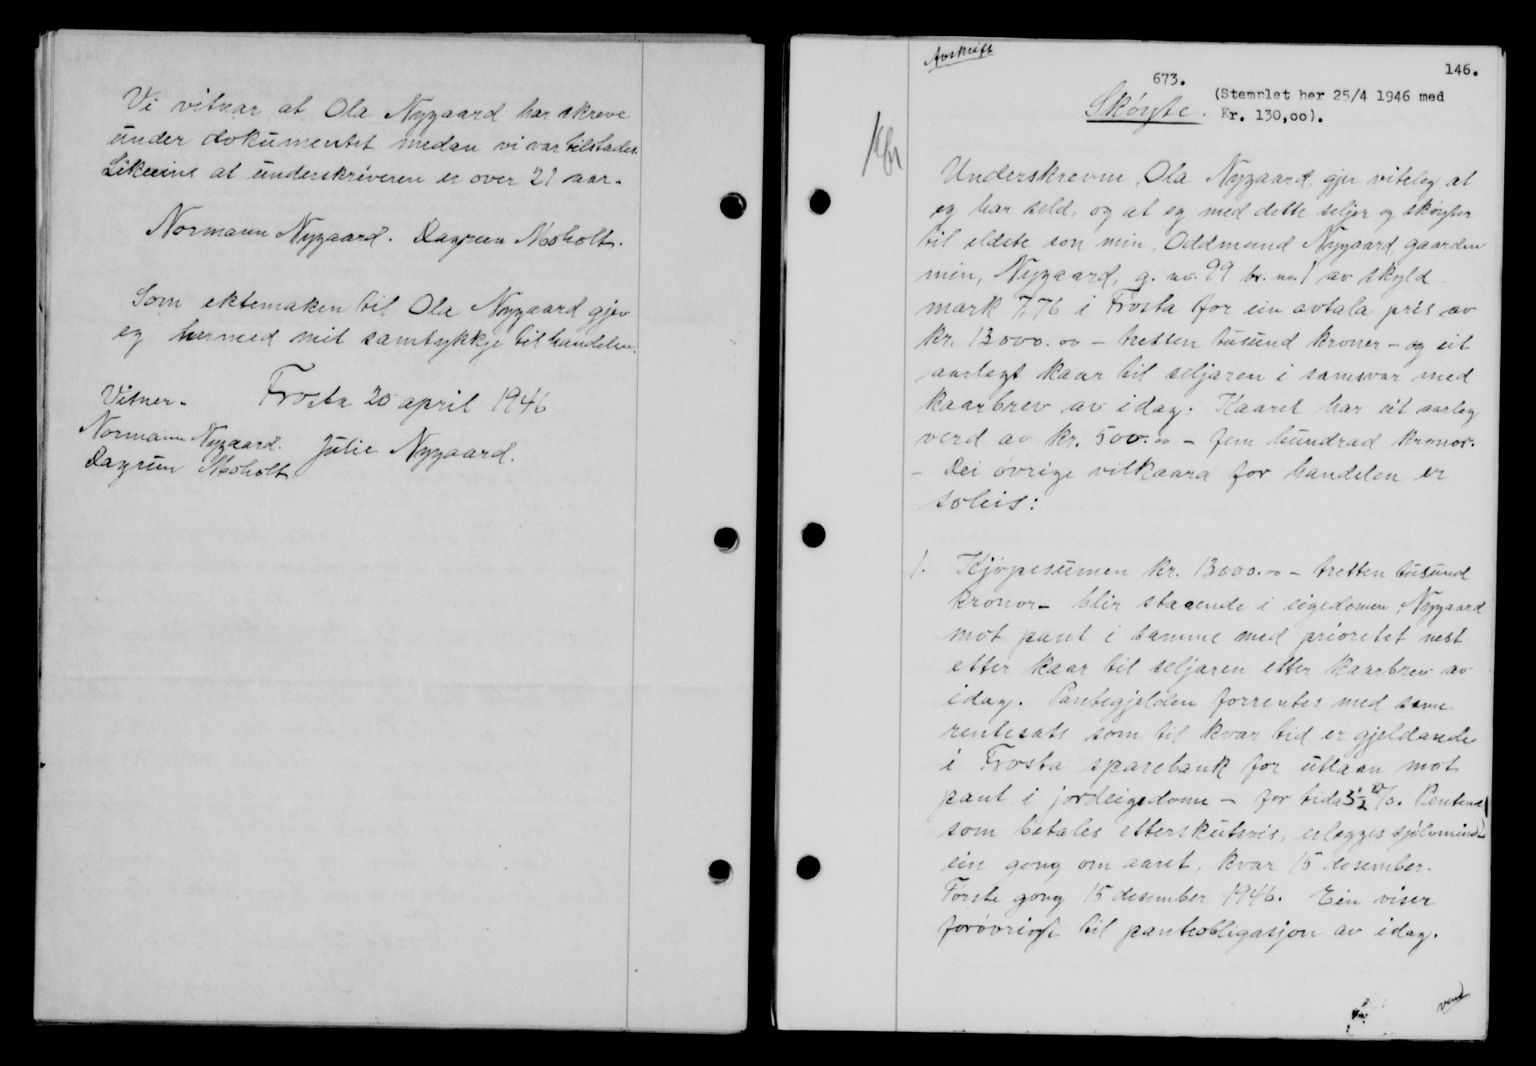 Vi vitnar at Ola Nygaard har skreve
under dokumentet medan vi var tilstades.
Likeeins at underskriveren er over 21 aar.
Normann Nygaard. Dagrun Moholt.
Som ektemaken til Ola Nygaard gjev
eg hermed mit samtykkje til handelen.
Frosta 20 april 1946
Vitner.
Normann Nygaard. Julie Nygaard.
Dagrun Moholt
Avskrift
146.
673.
(Stemplet her 25/4 1946 med
Kr. 130,oo).
Skøyte.
Underskrevne, Ola Nygaard, gjer viteleg at
eg har seld, og at eg med dette seljer og skøyter
til eldste son min, Oddmund Nygaard gaarden
min, Nygaard, g. no. 99 br. no. 1 av skyld
mark 7,76 i Frosta for ein avtala pris av
kr. 13000.oo – tretten tusund kroner – og eit
aarlegt kaar til seljaren i samsvar med
kaarbrev av idag. Kaaret har eit aarleg
verd av kr. 500.oo – fem hundrad kronor.
– Dei øvrige vilkaara for handelen er
soleis:
1. Kjøpesumen kr. 13000.oo – tretten tusund
kronor – blir staaende i eigedomen Nygaard
mot pant i samme med prioritet nest
etter kaar til seljaren etter kaarbrev av
idag. Pantegjelden forrentes med same
rentesats som til kvar tid er gjeldande
i Frosta sparebank for utlaan mot
pant i jordeigedom – for tida 3½ %. Renten
som betales etterskutsvis, erlegges sjølvmindt
ein gong om aaret, kvar 15 desember.
Første gong 15 desember 1946. Ein viser
forøvrigt til panteobligasjon av idag.
vend